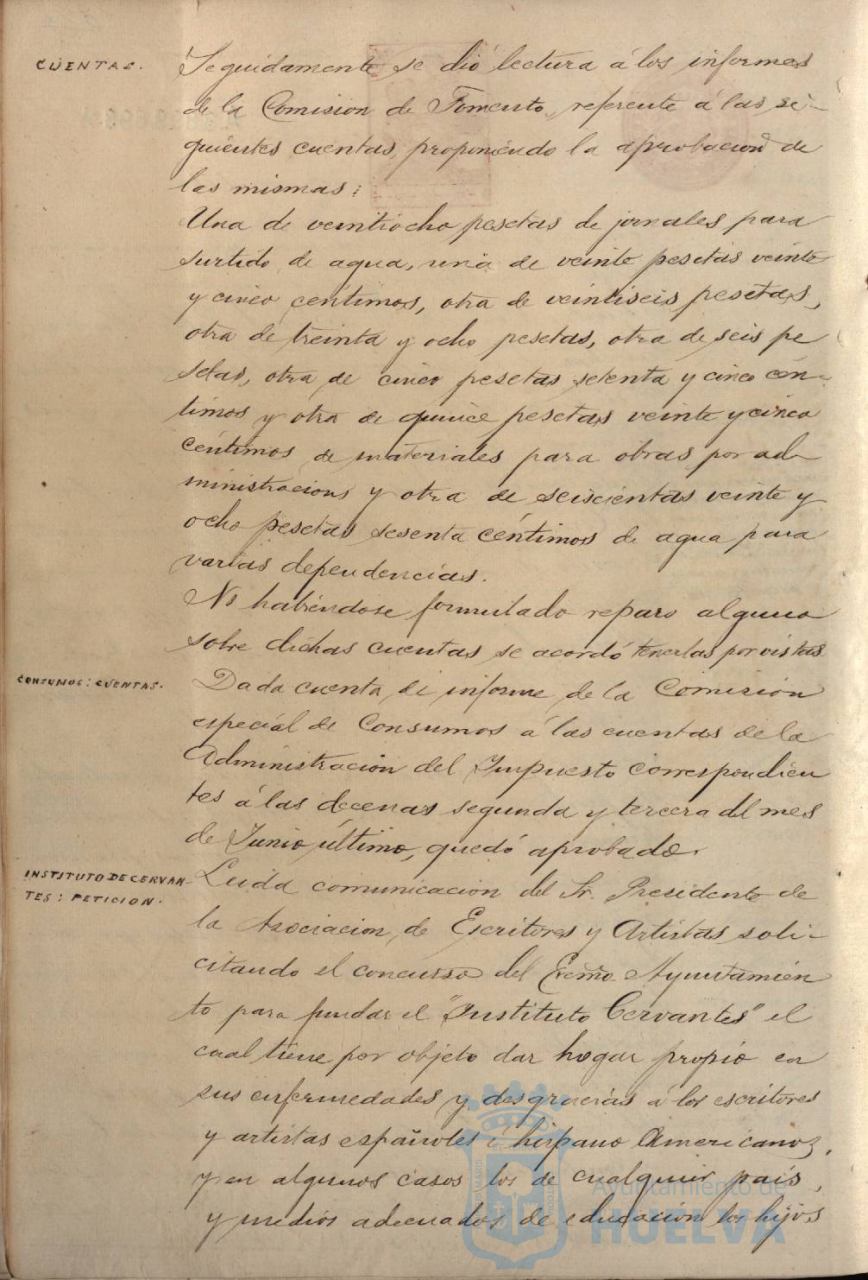 CUENTAS.
Seguidamente se dió lectura á los informes
de la Comision de Fomento, referente á las si-
guientes cuentas, proponiendo la aprobacion de
las mismas:
Una de veintiocho pesetas de jornales para
surtido de agua, una de veinte pesetas veinte
y cinco centimos, otra de veintiseis pesetas,
otra de treinta y ocho pesetas, otra de seis pe
setas, otra de cinco pesetas setenta y cinco cén-
timos y otra de quince pesetas veinte y cinco
céntimos de materiales para obras por ad-
ministracion y otra de seiscientas veinte y
ocho pesetas sesenta céntimos de agua para
varias dependencias.
No habiéndose formulado reparo alguno
sobre dichas cuentas se acordó tenerlas por vistas
CONSUMOS: CUENTAS.
Dada cuenta di informe de la Comisión
especial de Consumos á las cuentas de la
Administración del Impuesto correspondien
tes á las decenas segunda y tercera del mes
de Junio último, quedó aprobado.
INSTITUTO DE CERVAN-
TES: PETICION.
Leida comunicacion del Sr. Presidente de
la Asociacion de Escritores y Artistas soli-
citando el concurso del Excmo Ayuntamien
to para fundar el "Instituto Cervantes" el
cual tiene por objeto dar hogar propio en
sus enfermedades y desgracias á los escritores
y artistas españoles é hispano Americanos,
y en algunos casos los de cualquier país,
y medios adecuados de educacion los hijos
Ayuntamiento de
HUELVA